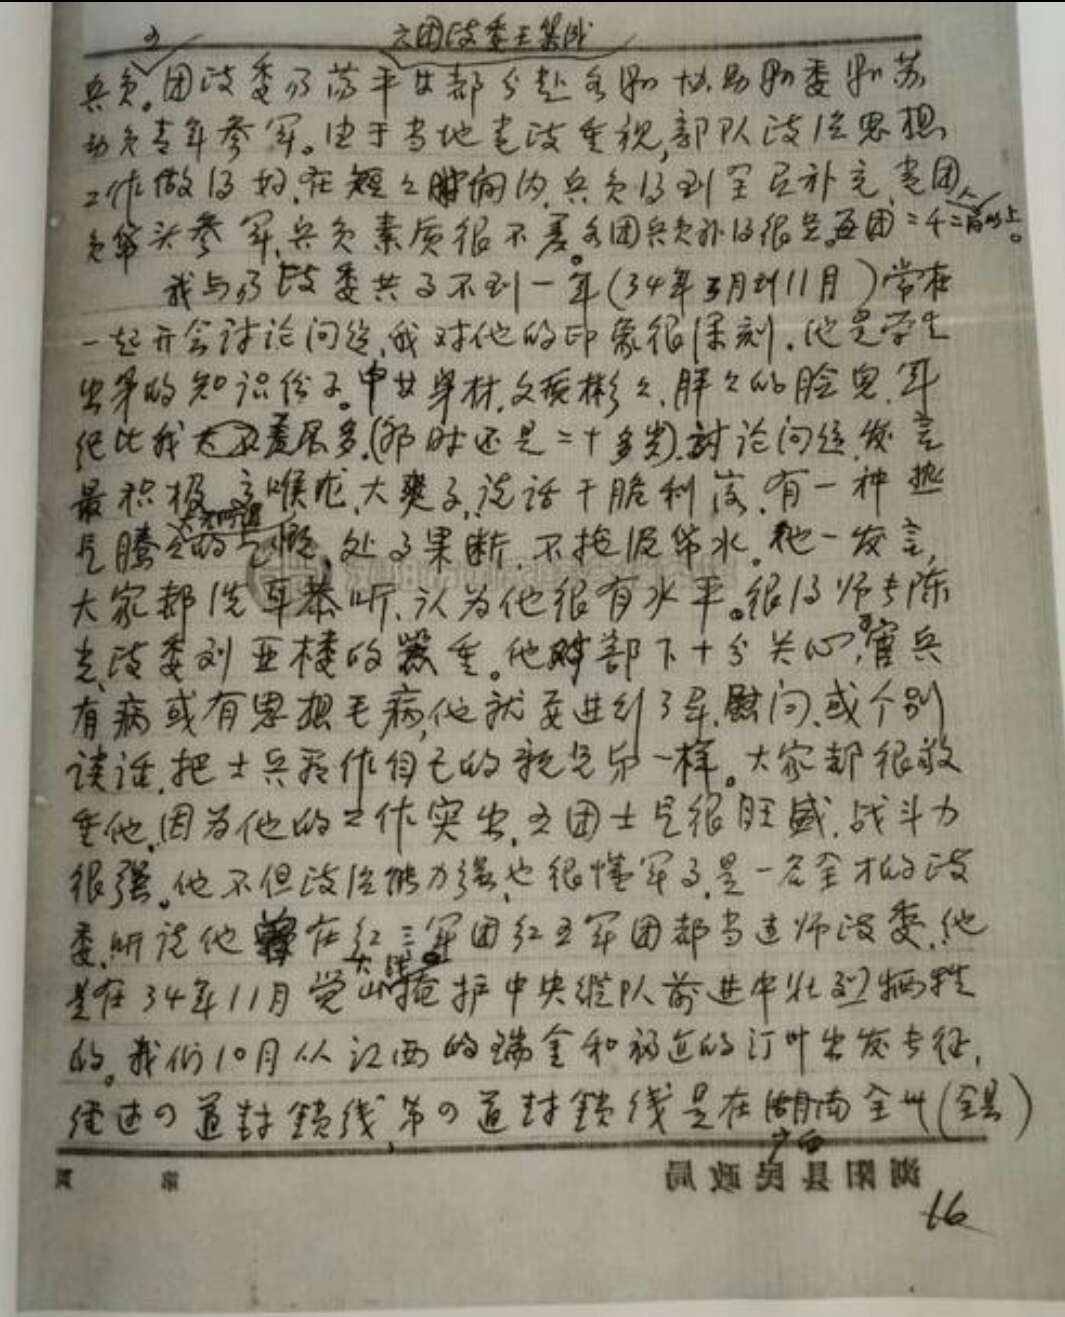 六团政委王集成
兵员。团政委易荡平女部分赴各县协助县委县苏
动员青年参军。由于当地党政重视,部队政治思想
工作做得好,在短々时间内,兵员得到全员补充,党团
员带头参军,兵员素质很不差。各团兵员补得很足。每团二千二百人以上。
我与易政委共事不到一年(34年3月到11月)常在
一起开会讨论问题,我对他的印象很深刻。他是学生
出身的知识份子。中等身材,文质彬々,胖々的脸皃,年
纪比我大不差很多。(那时还是二十多岁)。讨论问题,发言
最积极,高喉咙,大嗓子,说话干脆利落,有一种热
气腾々的气慨,处事果断,不拖泥带水。他一发言,
大家都洗耳恭听,认为他很有水平。很得师长陈
光,政委刘亚楼的器重。他对部下十分关心,官兵
有病或有思想毛病,他就要进行了解,慰问,或个别
谈话,把士兵看作自己的亲兄弟一样。大家都很敬
重他,因为他的工作突出,五团士气很旺盛,战斗力
很强。他不但政治能力强,也很懂军事,是一名全才的政
委,听说他曾在红三军团红五军团都当过师政委,他
是在34年11月觉山掩护中央纵队前进中壮烈牺牲
的。我们10月从江西的瑞金和福建的汀州出发长征,
经过四道封锁线,第四道封锁线是在湖南全州(全县)
广西
浏阳县民政局
第 页
16